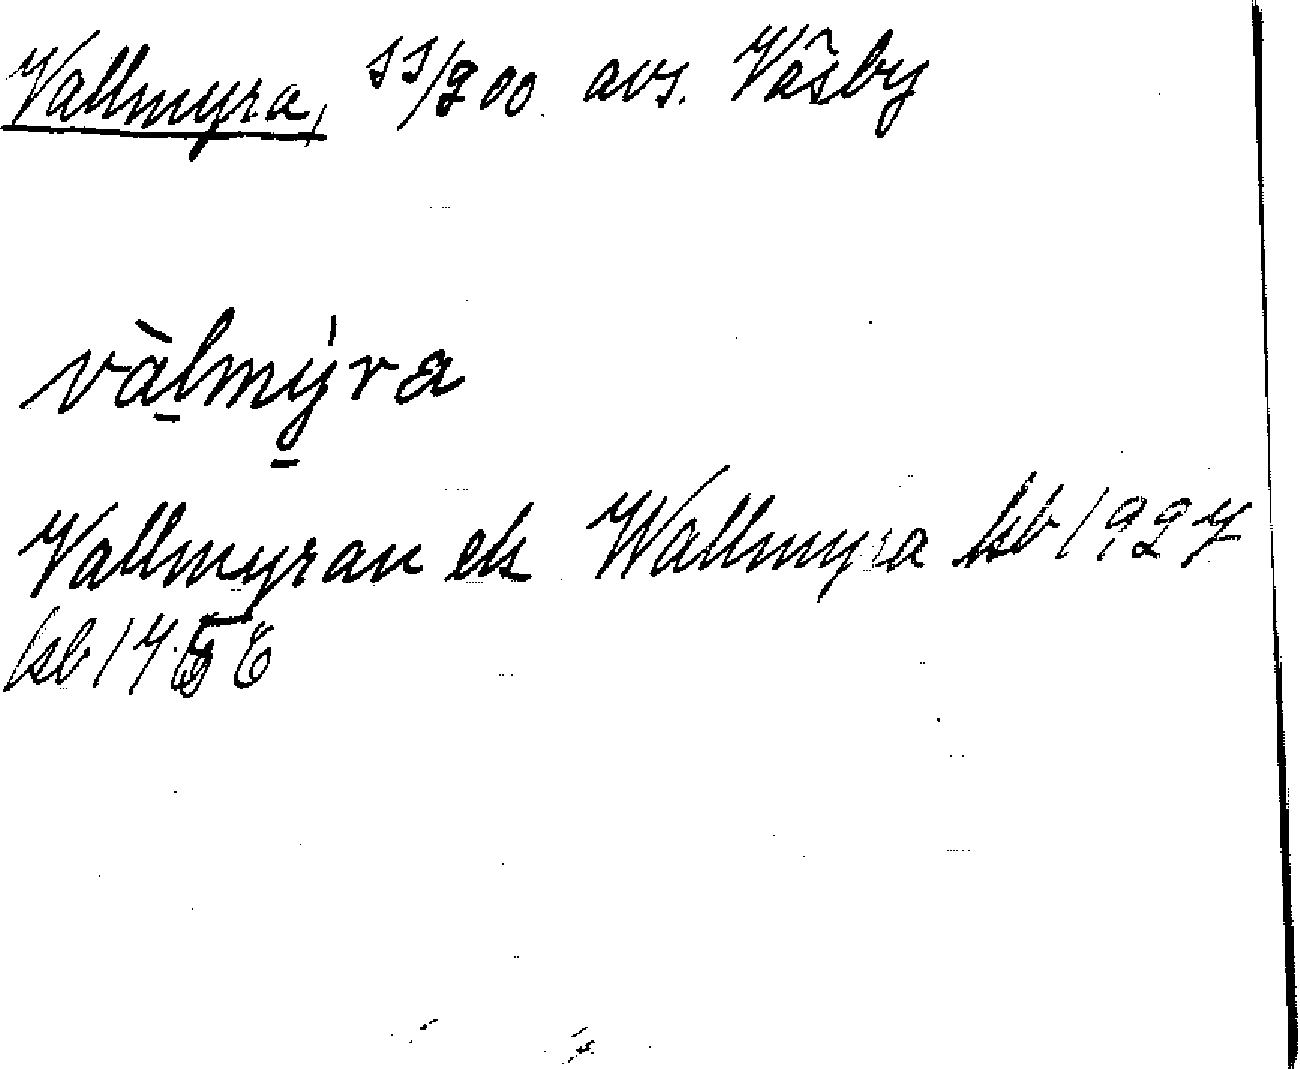 Vallmyra, 11/200 avs. Väsby
vàlmý̱ra
Vallmyran ek Wallmyra kb 1927
kb 1756